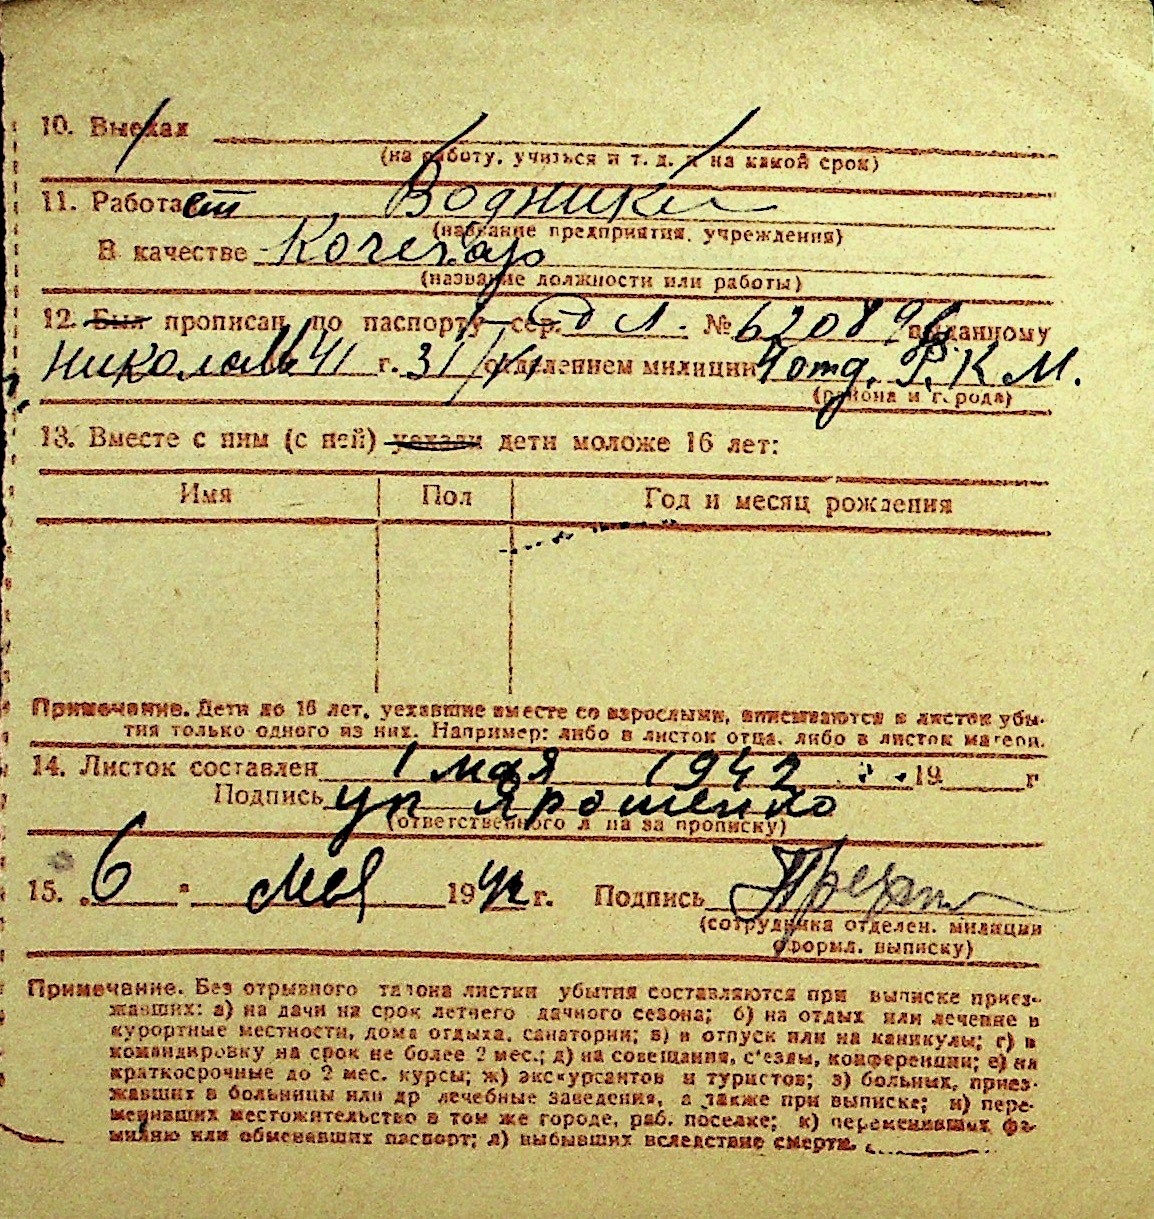 10. Выехал
(на работу, учиться и т. д. и на какой срок)
11. Работает Водник
(название предприятия, учреждения)
В качестве Кочегар
(название должности или работы)
12. Был прописан по паспорту сер. № 620896 выданному
Николаев 41 г. 31/VII отделением милиции 4 отд. Р.К.М.
(района и города)
13. Вместе с ним (с ней) уехали дети моложе 16 лет:
Имя Пол Год и месяц рождения
Примечание. Дети до 16 лет, уехавшие вместе со взрослыми, вписываются в листок убы-
тия только одного из них. Например: либо в листок отца, либо в листок матери.
14. Листок составлен 1 мая 1942 19 г
Подпись уп Ярошенко
(ответственного л ца за прописку)
15. 6 " мая 1942 г. Подпись
(сотрудника отделен. милиции
оформл. выписку)
Примечание. Без отрывного талона листки убытия составляются при выписке приез-
жавших: а) на дачи на срок летнего дачного сезона; б) на отдых или лечение в
курортные местности, дома отдыха, санатории; в) в отпуск или на каникулы; г) в
командировку на срок не более 2 мес.; д) на совещания, с'езды, конференции; е) на
краткосрочные до 2 мес. курсы; ж) экскурсантов и туристов; з) больных, приез-
жавших в больницы или др лечебные заведения, а также при выписке; и) пере-
менивших местожительство в том же городе, раб. поселке; к) переменивших фа-
милию или обменявших паспорт; л) выбывших вследствие смерти.